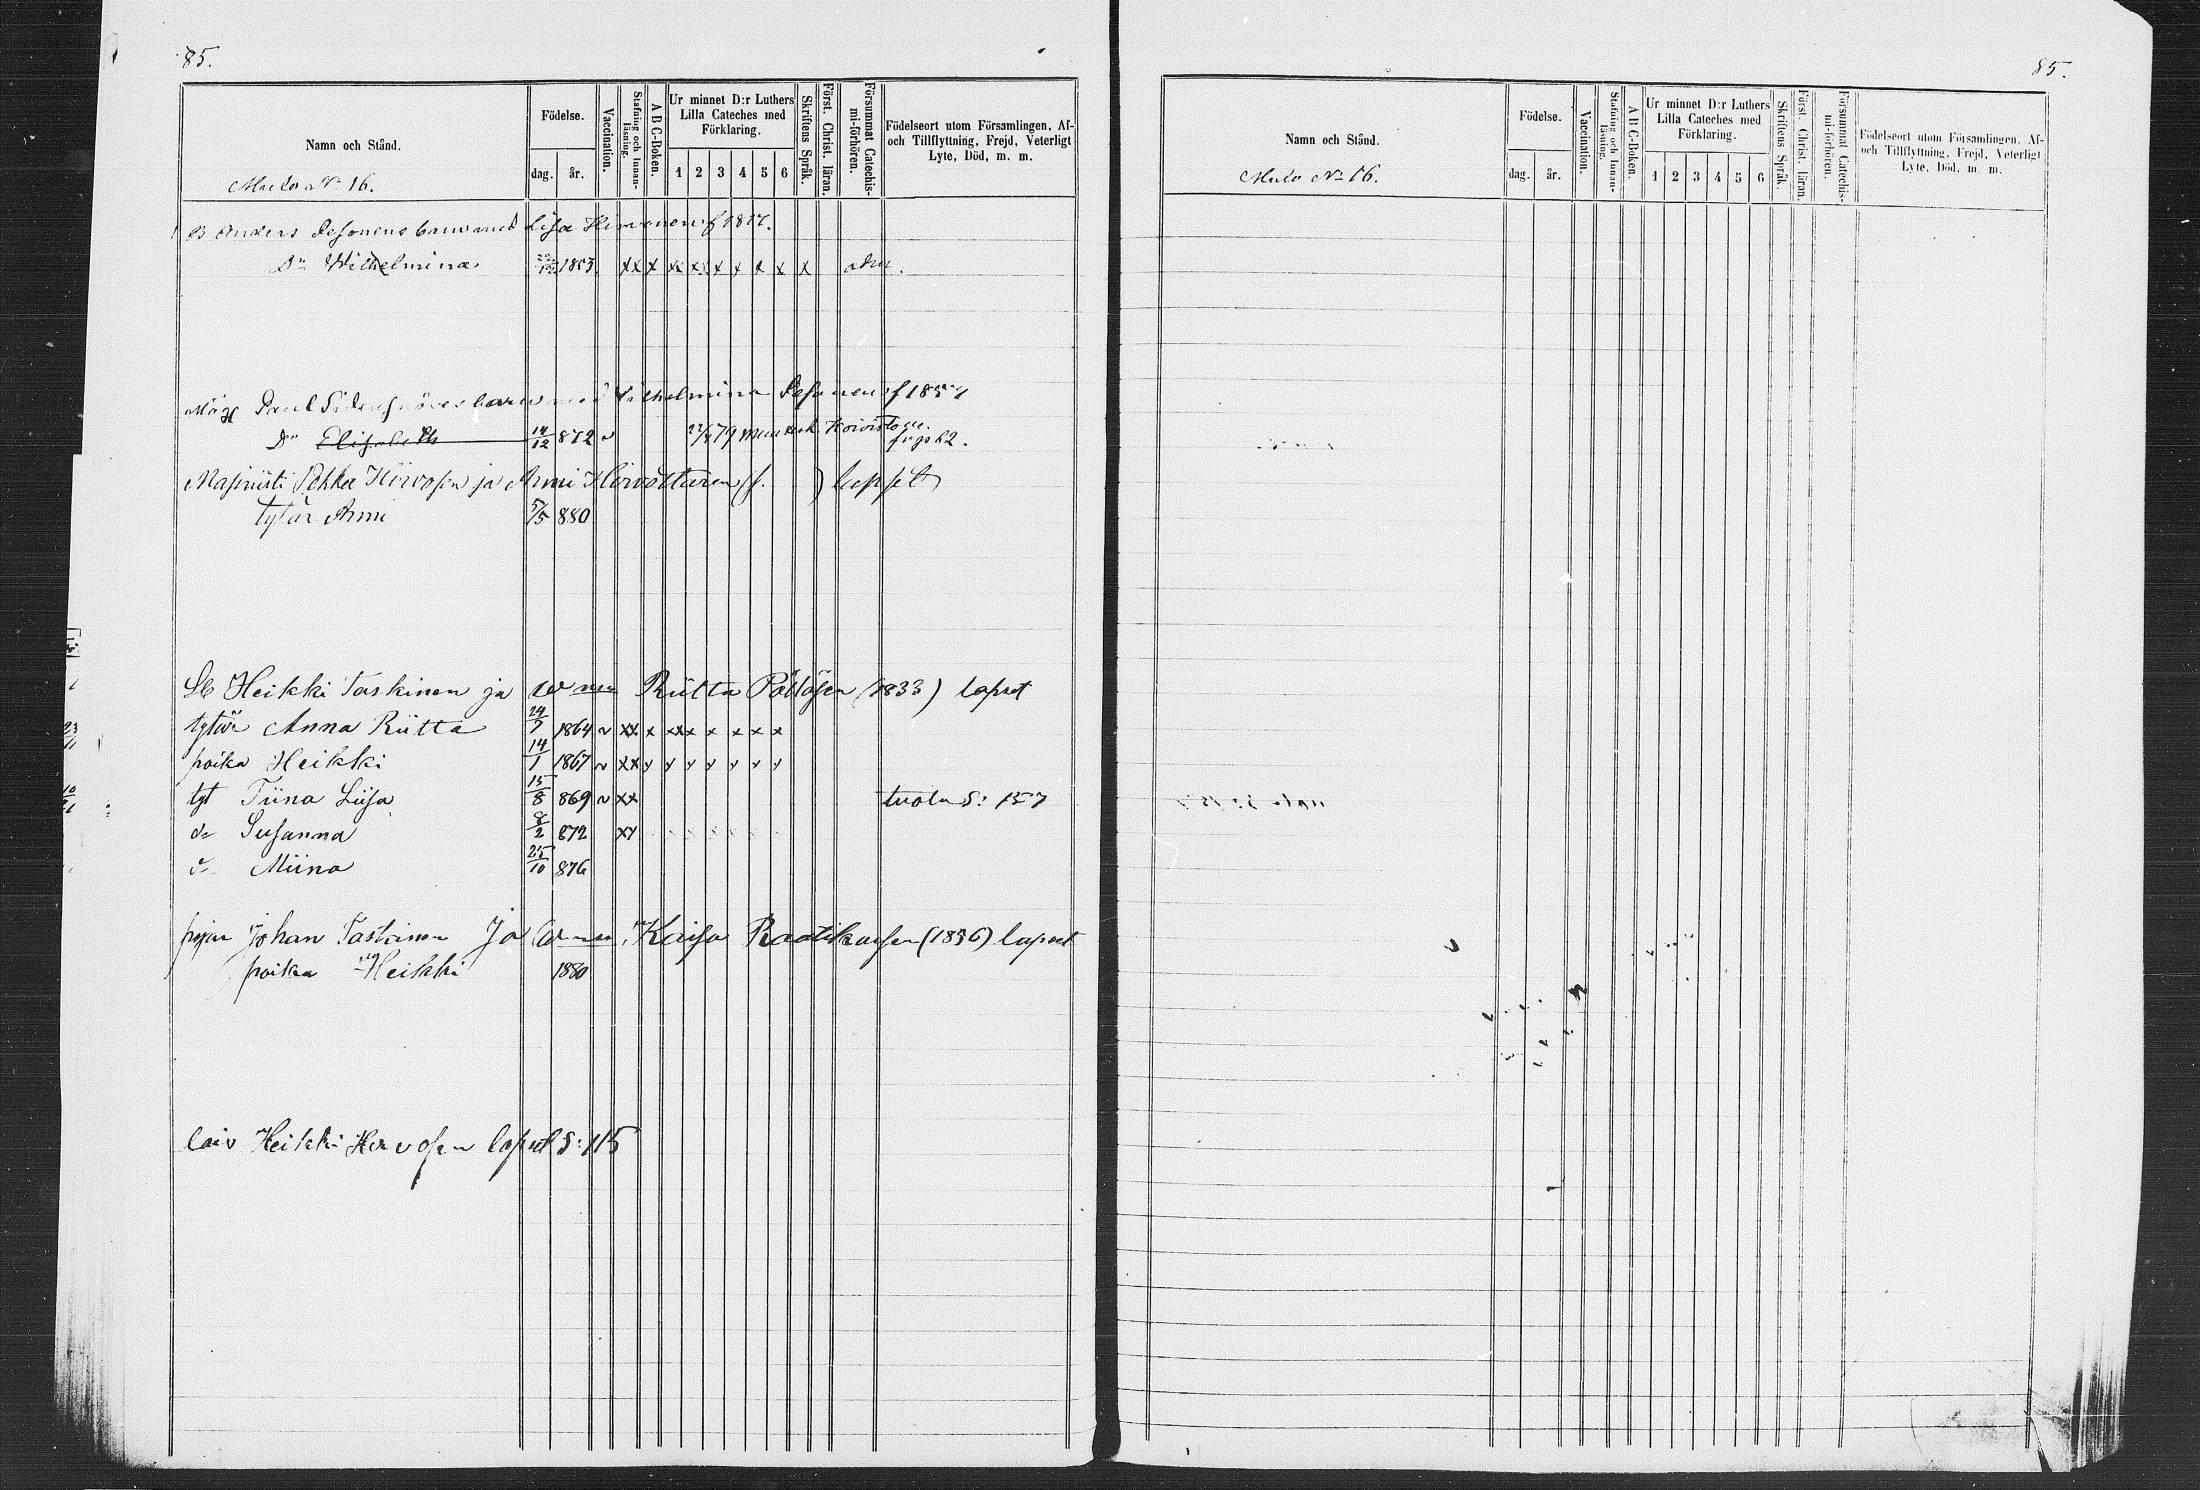 85.
Namn och Stånd.
Födelse.
dag.
år.
Vaccination.
Stafning och Innanläsning.
A B C-Boken.
Ur minnet D:r Luthers Lilla Cateches med Förklaring.
1 2 3 4 5 6
Skriftens Språk.
Först. Christ. läran.
Försummat Catechismi-förhören.
Födelseort utom Församlingen, Af- och Tillflyttning, Frejd, Veterligt Lyte, Död, m. m.
Mulo No 16.
B Anders barn med Lisa Hirvonen f 1817.
Dr Wilhelmina 1853 x x x x x x x x x x x adm.
Paul barn med Wilhelmina f 185
Dr Elisabeth 14/12 872 79 Koivisto
Masinisti Pekka Hirvosen ja Anni Hirvottaren lapset
tytär Anni 5/5 880
Heikki Taskinen ja w mn Riitta Pöllösen (1833) lapset
tytär Anna Riitta 24/7 1864 ~ xx x xx x x x x x
poika Heikki 14/1 1867 ~ xx y y y y y y y
tyt Tiina Liisa 15/8 869 ~ xx tuola S: 157
d:o Susanna 8/2 872 xy
d:o Miina 25/10 876
Johan Taskinen Ja w mn Kaisa Raatikaisen (1836) lapset
poika Heikki 1880
Lois Heikki Hirvosen lapset S: 115
85.
Namn och Stånd.
Födelse.
dag.
år.
Vaccination.
Stafning och Innanläsning.
A B C-Boken.
Ur minnet D:r Luthers Lilla Cateches med Förklaring.
1 2 3 4 5 6
Skriftens Språk.
Först. Christ. läran.
Försummat Catechismi-förhören.
Födelseort utom Församlingen, Af- och Tillflyttning, Frejd, Veterligt Lyte, Död, m. m.
Mulo No 16.